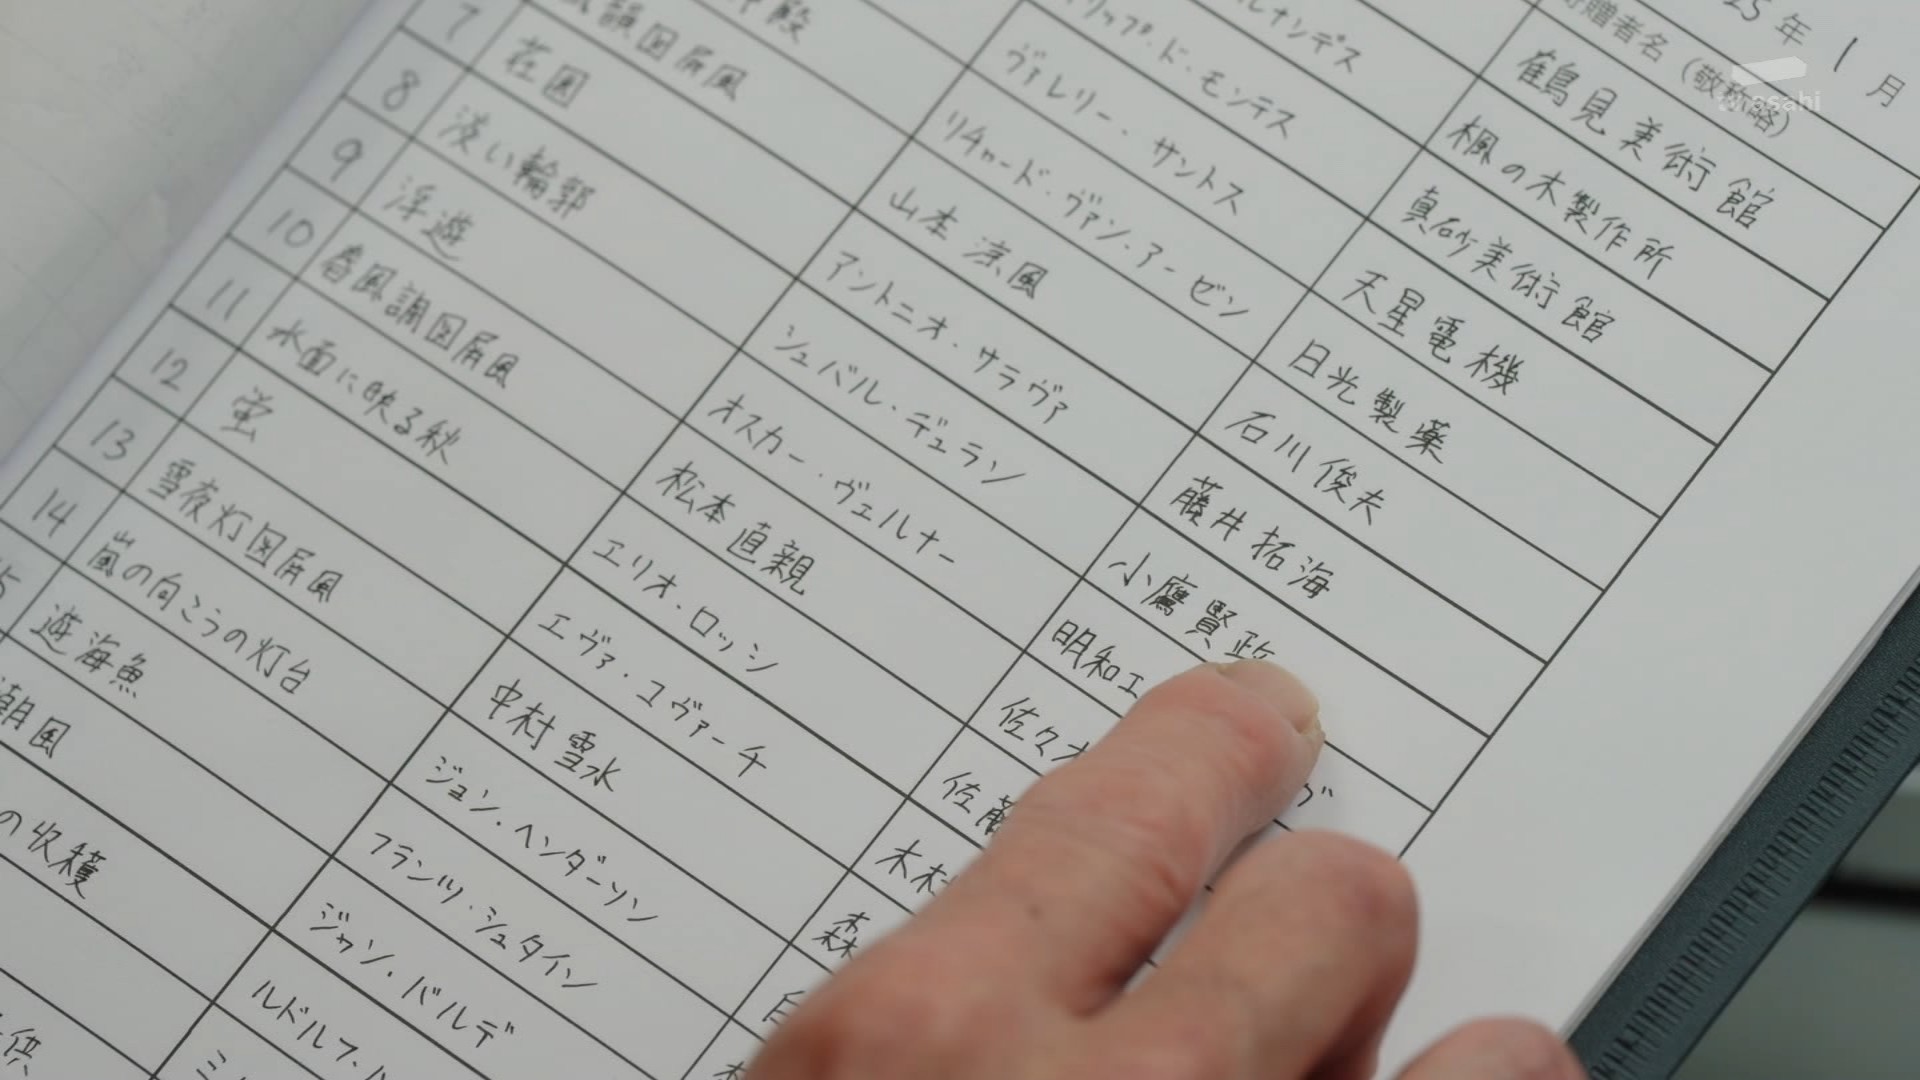 25年 1月
寄贈者名(敬称略)
鶴見美術館
ルナンデス 楓の木製作所
リップ・ド・モンテス 真砂美術館
ヴァレリー・サントス 天星電機
殿 リチャード・ヴァン・アービン 日光製薬
韻図屏風 山本涼風 石川俊夫
7 荘園 アントニオ・サラヴァ 藤井拓海
8 淡い輪郭 シュバル・デュラン 小鷹賢政
9 浮遊 オスカー・ヴェルナー 明和エ グ
10 春風調図屏風 松本直親 佐々
11 水面に映る秋 エリオ・ロッシ 佐藤
12 蛍 エヴァ・コヴァーチ 木村
13 雪夜灯図屏風 中村雪水 森
14 嵐の向こうの灯台 ジョン・ヘンダーソン
5 遊海魚 フランツ・シュタイン
潮風 ジャン・バルデ
の収穫 ルドルフ・
供
tv asahi